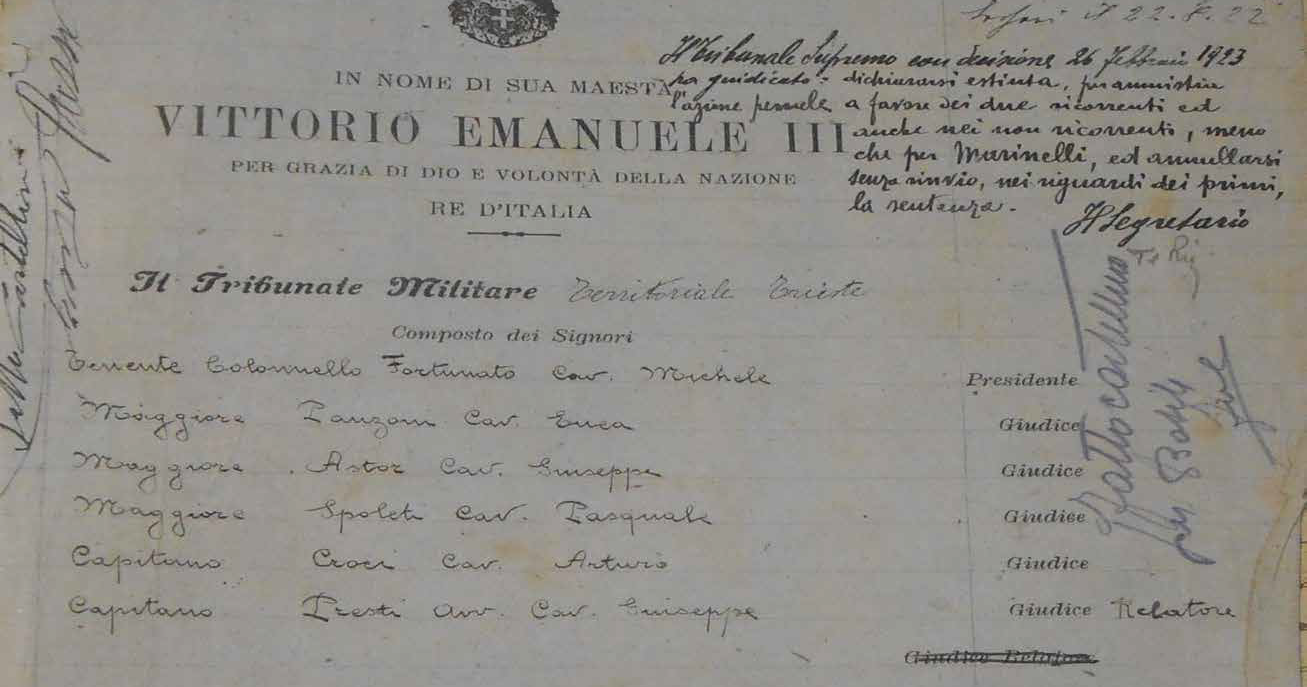 IN NOME DI SUA MAESTÀ
VITTORIO EMANUELE III
PER GRAZIA DI DIO E VOLONTÀ DELLA NAZIONE
RE D'ITALIA
Il Tribunale Supremo con decisione 26 febbraio 1923
ha giudicato: dichiararsi estinta, per amnistia
l'azione penale a favore dei due ricorrenti ed
anche nei non ricorrenti, meno
che per Marinelli, ed annullarsi
senza rinvio, nei riguardi dei primi,
la sentenza.
Il Segretario
Il Tribunale Militare Territoriale Trieste
Composto dei Signori
Tenente Colonnello Fortunato Cav. Michele Presidente
Maggiore Cav. Giudice
Maggiore Astor Cav. Giuseppe Giudice
Maggiore Spoleti Cav. Pasquale Giudice
Capitano Croci Cav. Arturo Giudice
Capitano Presti Avv. Cav. Giuseppe Giudice Relatore
Giudice Relatore